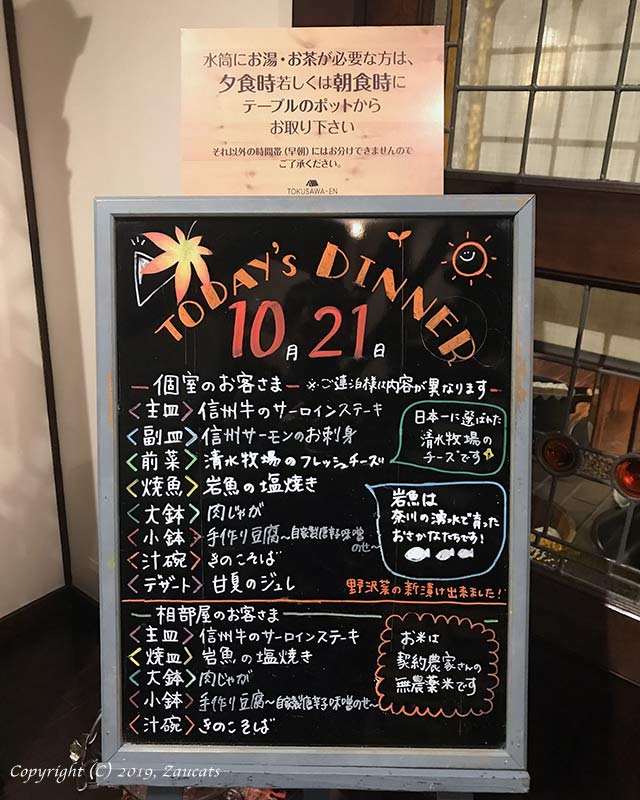 水筒にお湯・お茶が必要な方は、
夕食時若しくは朝食時に
テーブルのポットから
お取り下さい
それ以外の時間帯（早朝）にはお分けできませんので
ご了承ください。
TOKUSAWA-EN
TODAY'S DINNER
10月21日
個室のお客さま ※ご連泊様は内容が異なります
<主皿> 信州牛のサーロインステーキ
<副皿> 信州サーモンのお刺身
<前菜> 清水牧場のフレッシュチーズ
<焼魚> 岩魚の塩焼き
<大鉢> 肉じゃが
<小鉢> 手作り豆腐～自家製唐辛子味噌
のせ～
<汁碗> きのこそば
<デザート> 甘夏のジュレ
日本一に選ばれた
清水牧場の
チーズです
岩魚は
奈川の湧水で育った
おさかなたちです!
野沢菜の新漬け出来ました!
相部屋のお客さま
<主皿> 信州牛のサーロインステーキ
<焼皿> 岩魚の塩焼き
<大鉢> 肉じゃが
<小鉢> 手作り豆腐～自家製唐辛子味噌のせ～
<汁碗> きのこそば
お米は
契約農家さんの
無農薬米です
Copyright (C) 2019, Zaucats